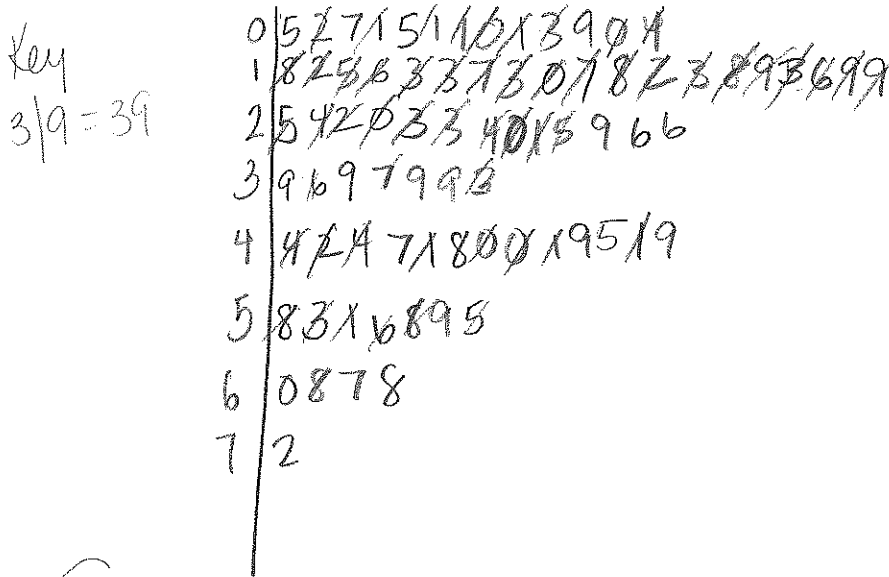 0 5 2 7 1 5 1 1 0 1 3 9 0 4
Key 1 8 2 5 6 3 3 1 3 0 1 8 2 3 8 9 3 6 9 9
3|9 = 39 2 5 4 2 0 3 3 4 0 1 5 9 6 6
3 9 6 9 7 9 9 3
4 4 2 4 7 1 8 0 0 1 9 5 1 9
5 8 3 1 6 8 9 5
6 0 8 7 8
7 2